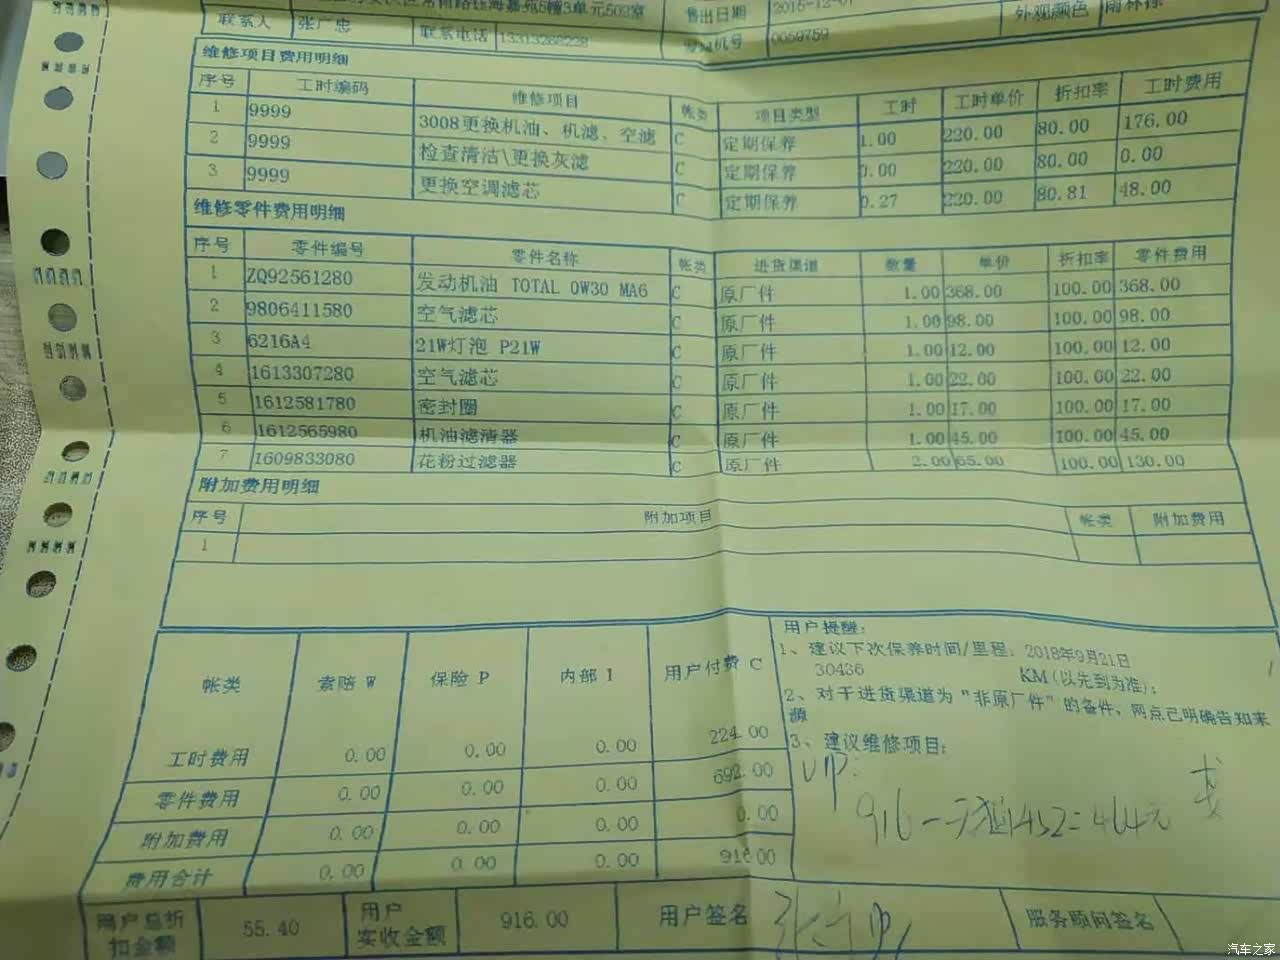 售出日期 2015-12-0
外观颜色
联系人 张广忠 联系电话 机号 0059759
维修项目费用明细
序号 工时编码 维修项目 帐类 项目类型 工时 工时单价 折扣率 工时费用
1 9999 3008更换机油、机滤、空滤 C 定期保养 1.00 220.00 80.00 176.00
2 9999 检查清洁\更换灰滤 C 定期保养 0.00 220.00 80.00 0.00
3 9999 更换空调滤芯 C 定期保养 0.27 220.00 80.81 48.00
维修零件费用明细
序号 零件编号 零件名称 帐类 进货渠道 数量 单价 折扣率 零件费用
1 ZQ92561280 发动机油 TOTAL 0W30 MA6 C 原厂件 1.00 368.00 100.00 368.00
2 9806411580 空气滤芯 C 原厂件 1.00 98.00 100.00 98.00
3 6216A4 21W灯泡 P21W C 原厂件 1.00 12.00 100.00 12.00
4 1613307280 空气滤芯 C 原厂件 1.00 22.00 100.00 22.00
5 1612581780 密封圈 C 原厂件 1.00 17.00 100.00 17.00
6 1612565980 机油滤清器 C 原厂件 1.00 45.00 100.00 45.00
7 1609833080 花粉过滤器 C 原厂件 2.00 65.00 100.00 130.00
附加费用明细
序号 附加项目 帐类 附加费用
1
帐类 索赔 W 保险 P 内部 I 用户付费 C
工时费用 0.00 0.00 0.00 224.00
零件费用 0.00 0.00 0.00 692.00
附加费用 0.00 0.00 0.00 0.00
费用合计 0.00 0.00 0.00 916.00
用户提醒:
1、建议下次保养时间/里程: 2018年9月21日
30436 KM(以先到为准);
2、对于进货渠道为“非原厂件”的备件，网点已明确告知来
源
3、建议维修项目:
VIP:
916-天猫452=464元
用户总折扣金额 55.40 用户实收金额 916.00 用户签名 张广忠 服务顾问签名
汽车之家